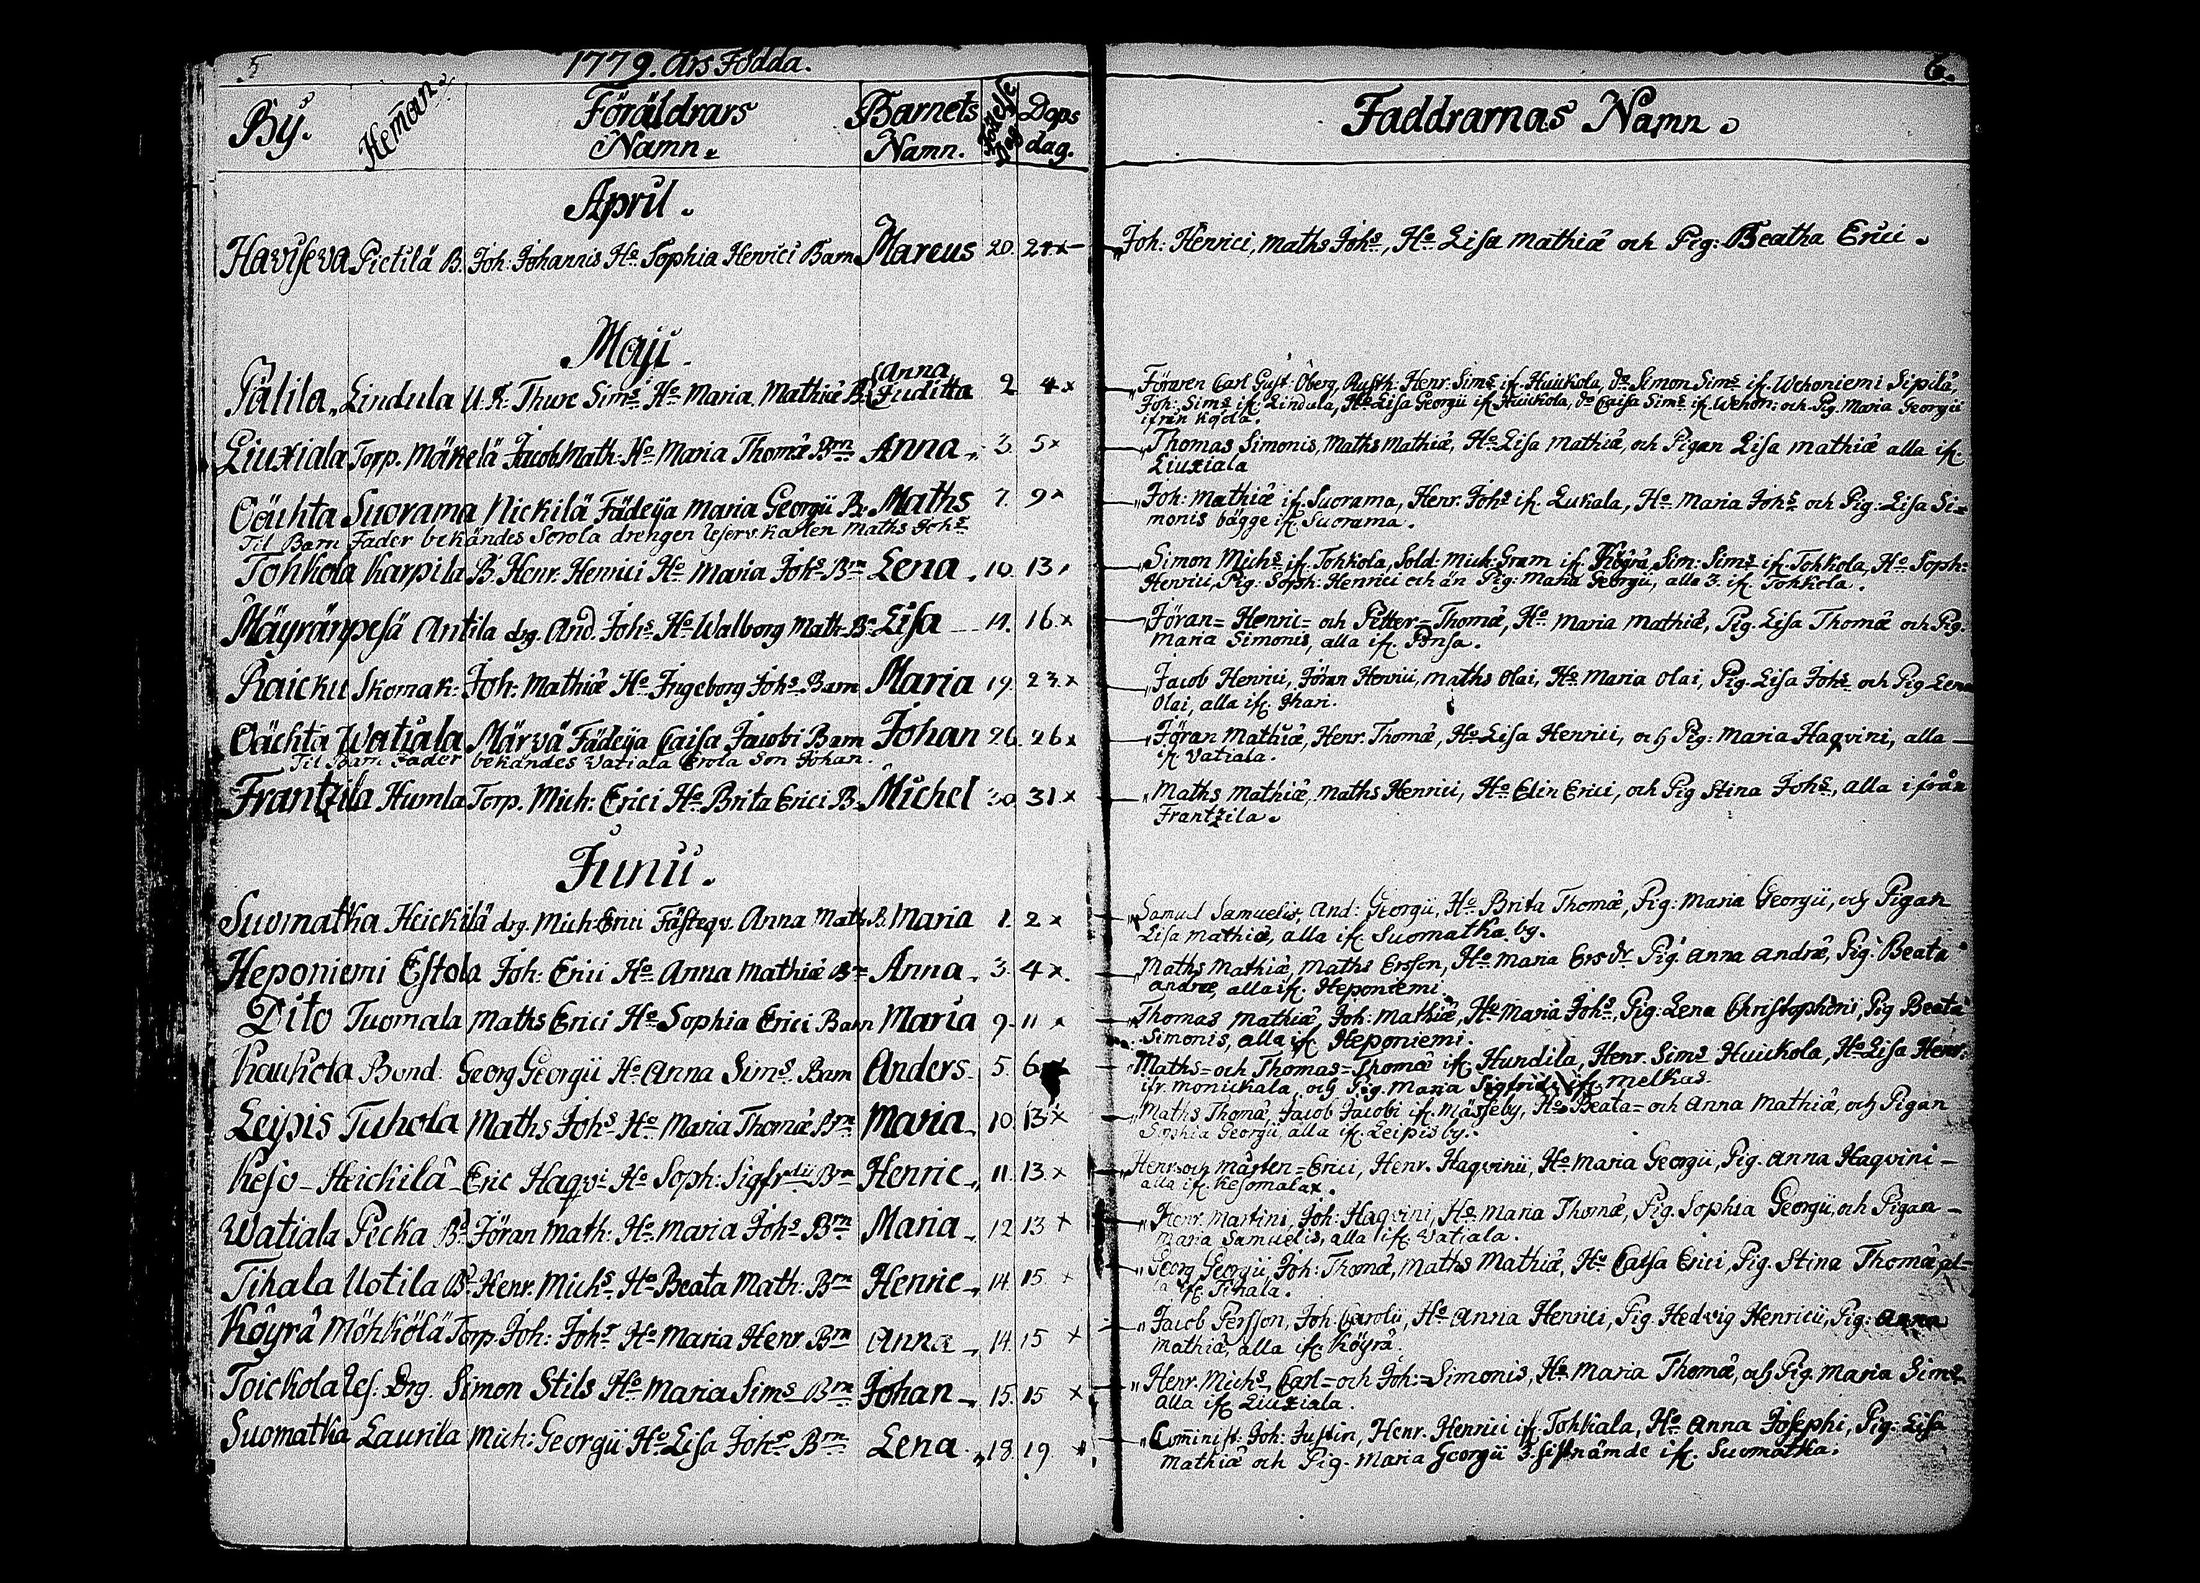 5 1779. Års Födda. 6.
By. Heman. Föräldrars Namn. Barnets Namn. Födelse Dag Dops dag. Faddrarnas Namn.
April.
Haviseva Pietilä B. Joh: Johannis Ho Sophia Henrici Barn Marcus 20. 24 x Joh: Henrici, Maths Johs, Ho Lisa Mathiæ och Pig: Beatha Erici.
Maji.
Pälila Lindula U.R. Thure Sims Ho Maria Mathiæ B. Anna Juditta 2 4 x Föraren Carl Gust: Öberg, Rusth: Henr: Sims if. Huickola, Do Simon Sims if. Wehoniemi Sipilä,
Joh: Sims if. Lindula, Ho Lisa Georgii if. Huickola, Do Caisa Sims if. Wehon: och Pig. Maria Georgii
ifrån
Liuxiala Torp. Mäkelä Jacob Math: Ho Maria Thomæ Brn Anna 3. 5 x Thomas Simonis, Maths Mathiæ, Ho Lisa Mathiæ, och Pigan Lisa Mathiæ alla if.
Liuxiala
Oächta Suorama Nickilä Fädeija Maria Georgii B. Maths 7. 9 x Joh: Mathiæ if. Suorama, Henr. Johs if. Lukala, Ho Maria Johs och Pig: Lisa Si-
monis bägge if. Suorama.
Til Barn Fader bekändes Sorola drengen Reserv.karlen Maths Johs
Tohkola Karpila B. Henr. Henrici Ho Maria Johs Brn Lena 10. 13 Simon Michs if. Tohkola, Sold: Mich: Gram if. Köyrä, Sim: Sims if. Tohkola, Ho Soph:
Henrici, Pig. Soph: Henrici och än Pig: Maria Georgii, alla 3. if. Tohkola.
Mäyränpesä Antila drg. And. Johs Ho Walborg Math: Bn Lisa 14. 16 x Jöran= Henric= och Petter= Thomæ, Ho Maria Mathiæ, Pig. Lisa Thomæ och Pig.
Maria Simonis, alla if. Ponsa.
Raicku Skomak: Joh: Mathiæ Ho Ingeborg Johs Barn Maria 19. 23. x Jacob Henrici, Jöran Henrici, Maths Olai, Ho Maria Olai, Pig. Lisa Johs och Pig Lena
Olai, alla if. Ihari.
Oächta Watiala Märvä Fädeija Caisa Jacobi Barn Johan 26. 26 x Jöran Mathiæ, Henr. Thomæ, Ho Lisa Henrici, och Pig: Maria Haqvini, alla
if. Vatiala.
Til Barn Fader bekändes Vatiala Erola Son Johan.
Frantzila Humla Torp. Mich: Erici Ho Brita Erici B. Michel 30. 31 x Maths Mathiæ, Maths Henrici, Ho Elin Erici, och Pig Stina Johs, alla ifrån
Frantzila.
Junii.
Suomatka Heickilä drg. Mich: Erici Fästeqv. Anna Math: B. Maria 1. 2 x Samuel Samuelis, And: Georgii, Ho Brita Thomæ, Pig: Maria Georgii, och Pigan
Lisa Mathiæ, alla if. Suomatka by.
Heponiemi Estola Joh: Erici Ho Anna Mathiæ Bn Anna 3. 4 x. Maths Mathiæ, Maths Ersson, Ho Maria Ersdr Pig. Anna Andræ, Pig: Beata
Andræ, alla if. Heponiemi
Dito Tuomala Maths Erici Ho Sophia Erici Barn Maria 9. 11 x Thomas Mathiæ, Joh: Mathiæ, Ho Maria Johs, Pig: Lena Christopheri, Pig Beata
Simonis, alla if. Heponiemi.
Kaukola Bond. Georg Georgii Ho Anna Sims Barn Anders 5. 6 Maths= och Thomas= Thomæ if. Hundila, Henr. Sims Huickola, Ho Lisa Henr:
ifr. Monickala, och Pig. Maria Sigfridi if. Melkas.
Leipis Tuhola Maths Johs Ho Maria Thomæ Brn Maria 10. 13 x Maths Thomæ, Jacob Jacobi if. Mässeby, Ho Beata= och Anna Mathiæ, och Pigan
Sophia Georgii, alla if. Leipis by.
Keso Heickilä Eric Haqvi Ho Soph: Sigfridii Brn Henric 11. 13. x Henr. och Mårten= Erici, Henr. Haqvinii, Ho Maria Georgii, Pig. Anna Haqvini
alla if. Kesomala.
Watiala Pecka Bd Jöran Math: Ho Maria Johs Brn Maria 12 13 x Henr. Martini, Joh: Haqvini, Ho Maria Thomæ, Pig. Sophia Georgii, och Pigan
Maria Samuelis, alla if. Vatiala.
Tihala Uotila Bd Henr. Michs Ho Beata Math: Brn Henric 14. 15 x Georg Georgii, Joh: Thomæ, Maths Mathiæ, Ho Caisa Erici, Pig. Stina Thomæ, al-
la if. Tihala.
Köyrä Möhkölä Torp. Joh: Johs Ho Maria Henr. Brn Anna 14. 15 x Jacob Persson, Joh: Carolii, Ho Anna Henrici, Pig. Hedvig Henricii, Pig: Anna
Mathiæ, alla if. Köyrä.
Toickola Res. Drg. Simon Stils Ho Maria Sims Brn Johan 15. 15 x Henr. Michs Carl= och Joh:= Simonis, Ho Maria Thomæ, och Pig. Maria Sims
alla if. Liuxiala.
Suomatka Laurila Mich: Georgii Ho Lisa Johs Brn Lena 18. 19. x Cominist. Joh: Justin, Henr. Henrici if. Tohkala, Ho Anna Josephi, Pig: Lisa
Mathiæ och Pig. Maria Georgii 3. sistnämde if. Suomatka.